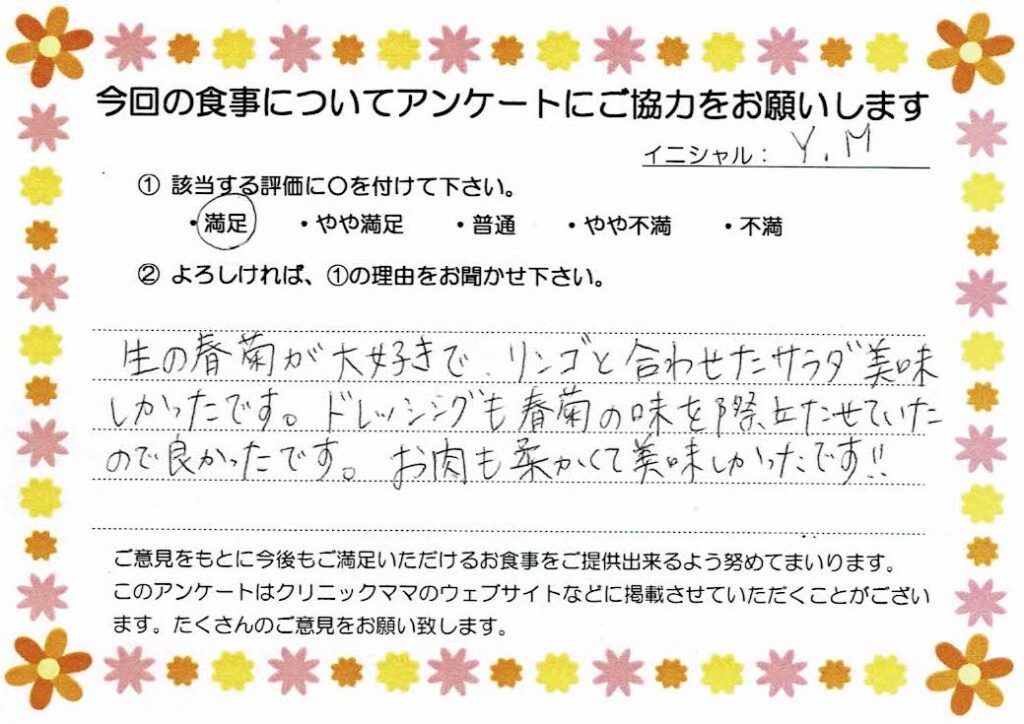 今回の食事についてアンケートにご協力をお願いします
イニシャル： Y.M
① 該当する評価に〇を付けて下さい。
・満足 ・やや満足 ・普通 ・やや不満 ・不満
② よろしければ、①の理由をお聞かせ下さい。
生の春菊が大好きで、リンゴと合わせたサラダ美味
しかったです。ドレッシングも春菊の味を際立たせていた
ので良かったです。お肉も柔かくて美味しかったです!!
ご意見をもとに今後もご満足いただけるお食事をご提供出来るよう努めてまいります。
このアンケートはクリニックママのウェブサイトなどに掲載させていただくことがござい
ます。たくさんのご意見をお願い致します。